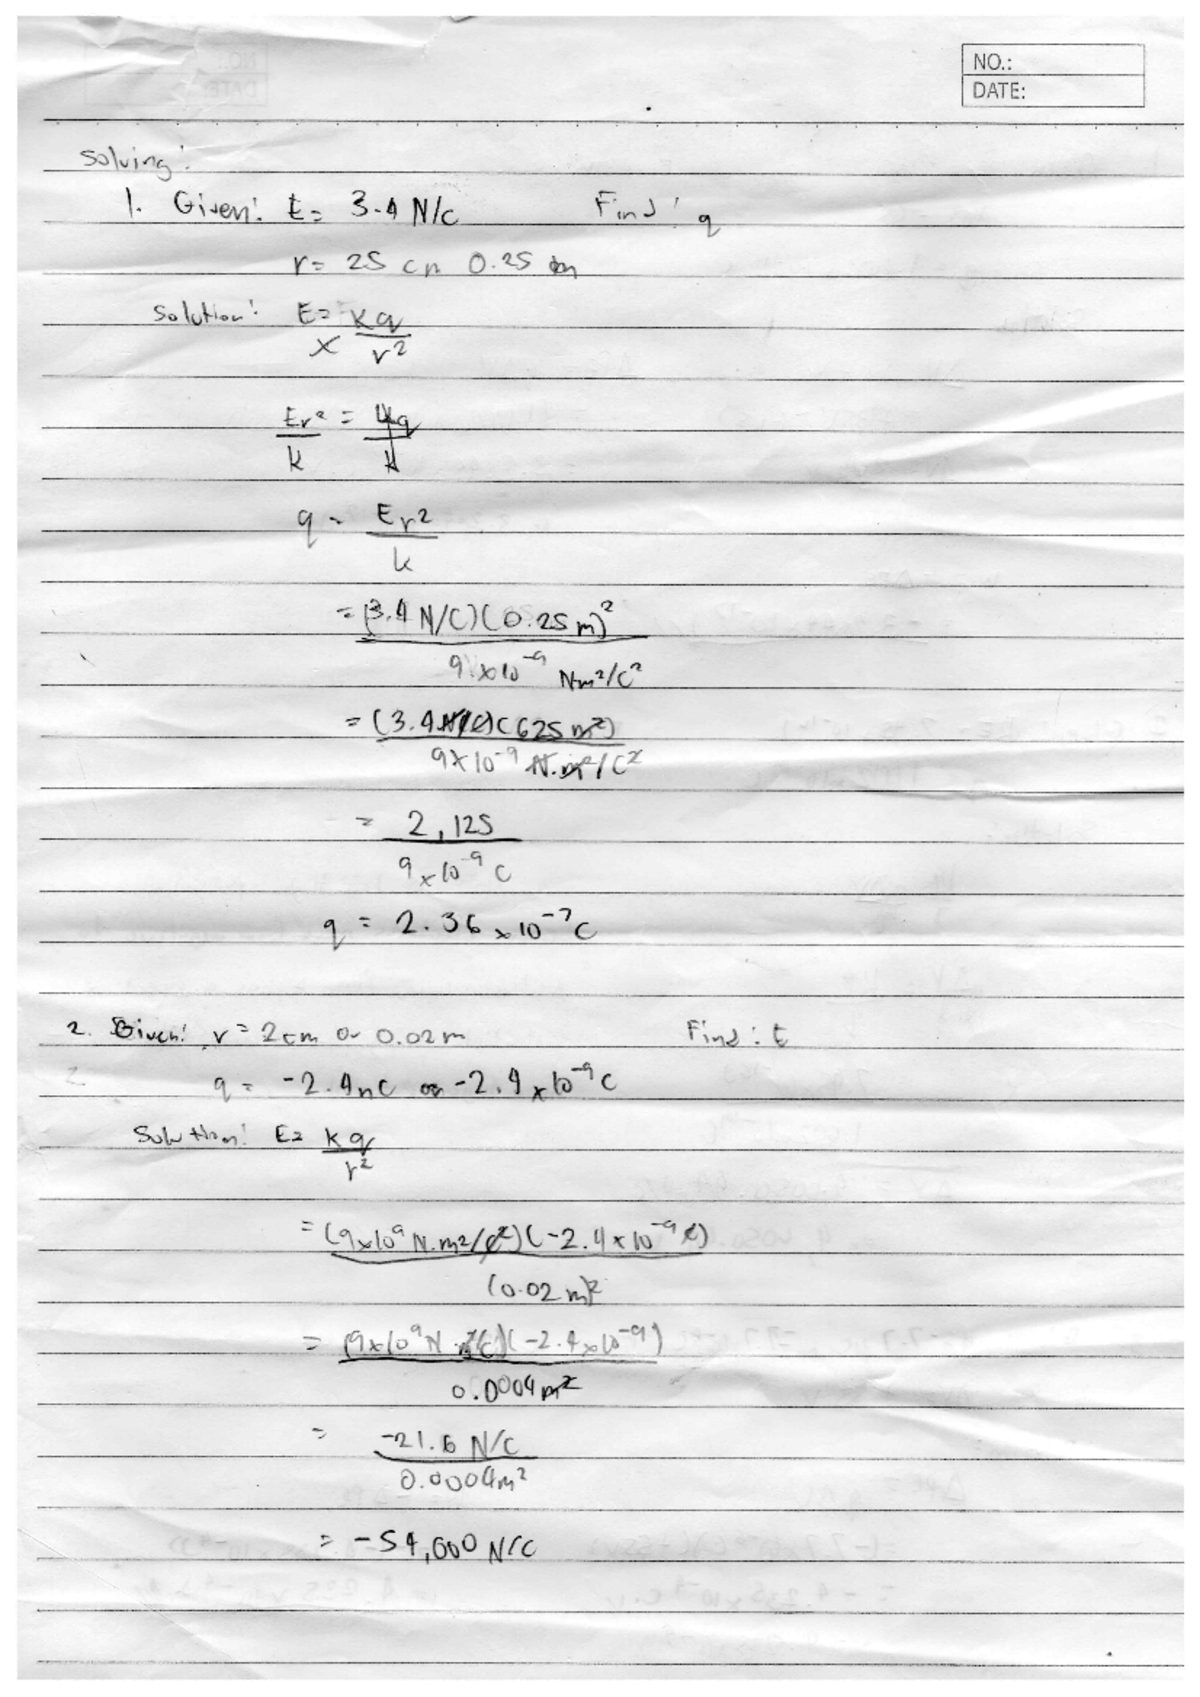 NO.:
DATE:
Solving:
1. Given: E = 3.4 N/C Find: q
r = 25 cm 0.25 m
Solution: E = kq
r²
Er² = kq
k k
q = Er²
k
= (3.4 N/C)(0.25 m)²
9x10⁻⁹ Nm²/C²
= (3.4 N/C)(625 m²)
9x10⁻⁹ N.m²/C²
= 2,125
9x10⁻⁹ C
q = 2.36 x 10⁻⁷ C
2. Given: r = 2cm or 0.02m Find: E
q = -2.4nC or -2.4 x 10⁻⁹ C
Solution: E= kq
r²
= (9x10⁹ N.m²/C²)(-2.4 x 10⁻⁹ C)
(0.02 m)²
= (9x10⁹ N m²/C)(-2.4x10⁻⁹)
0.0004 m²
= -21.6 N/C
0.0004m²
= -54,000 N/C